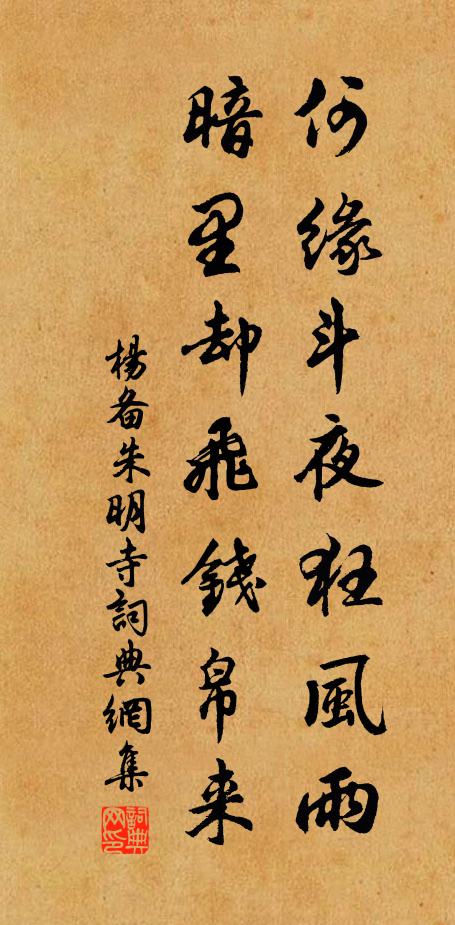 何緣斗夜狂風雨
暗里却飛錢帛来
楊备朱明寺詞典網集
詞典网印